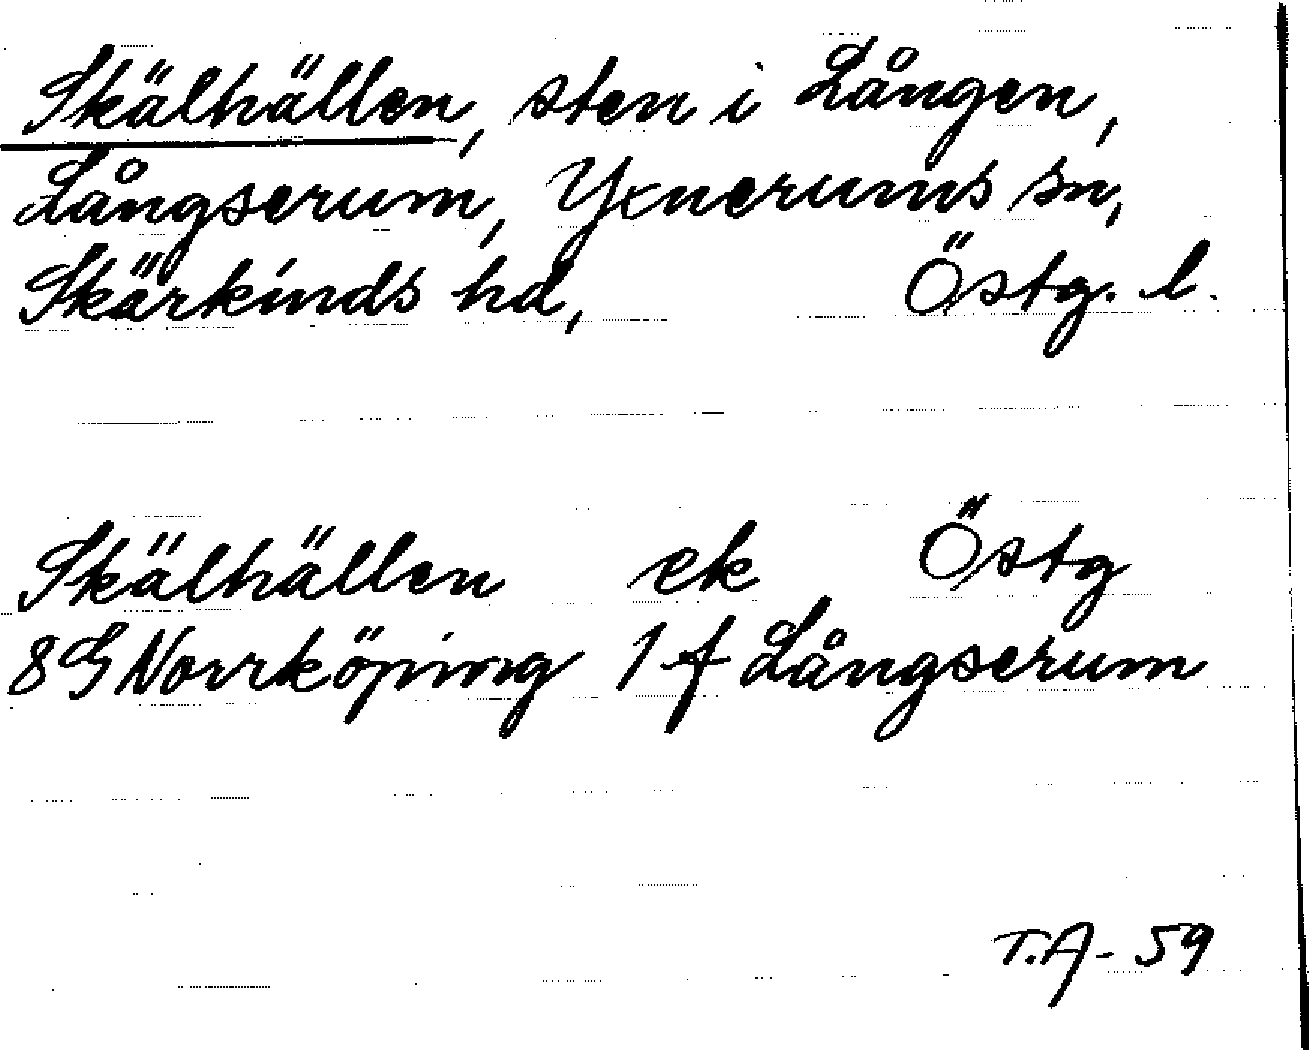 Skälhällen, sten i Lången,
Långserum, Yxnerums sn,
Skärkinds hd, Östg. l.
Skälhällen ek Östg
8G Norrköping 1 f Långserum
T.A - 59